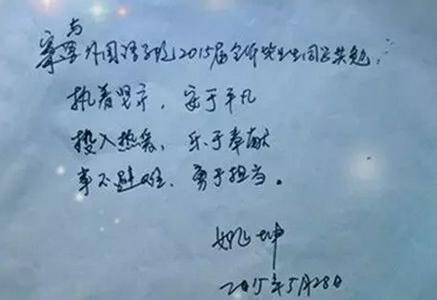 与外国语学院2015届全体毕业生同学共勉：
执着坚守，安于平凡
投入热爱，乐于奉献
事不避难，勇于担当。
姚坤
2015年5月28日